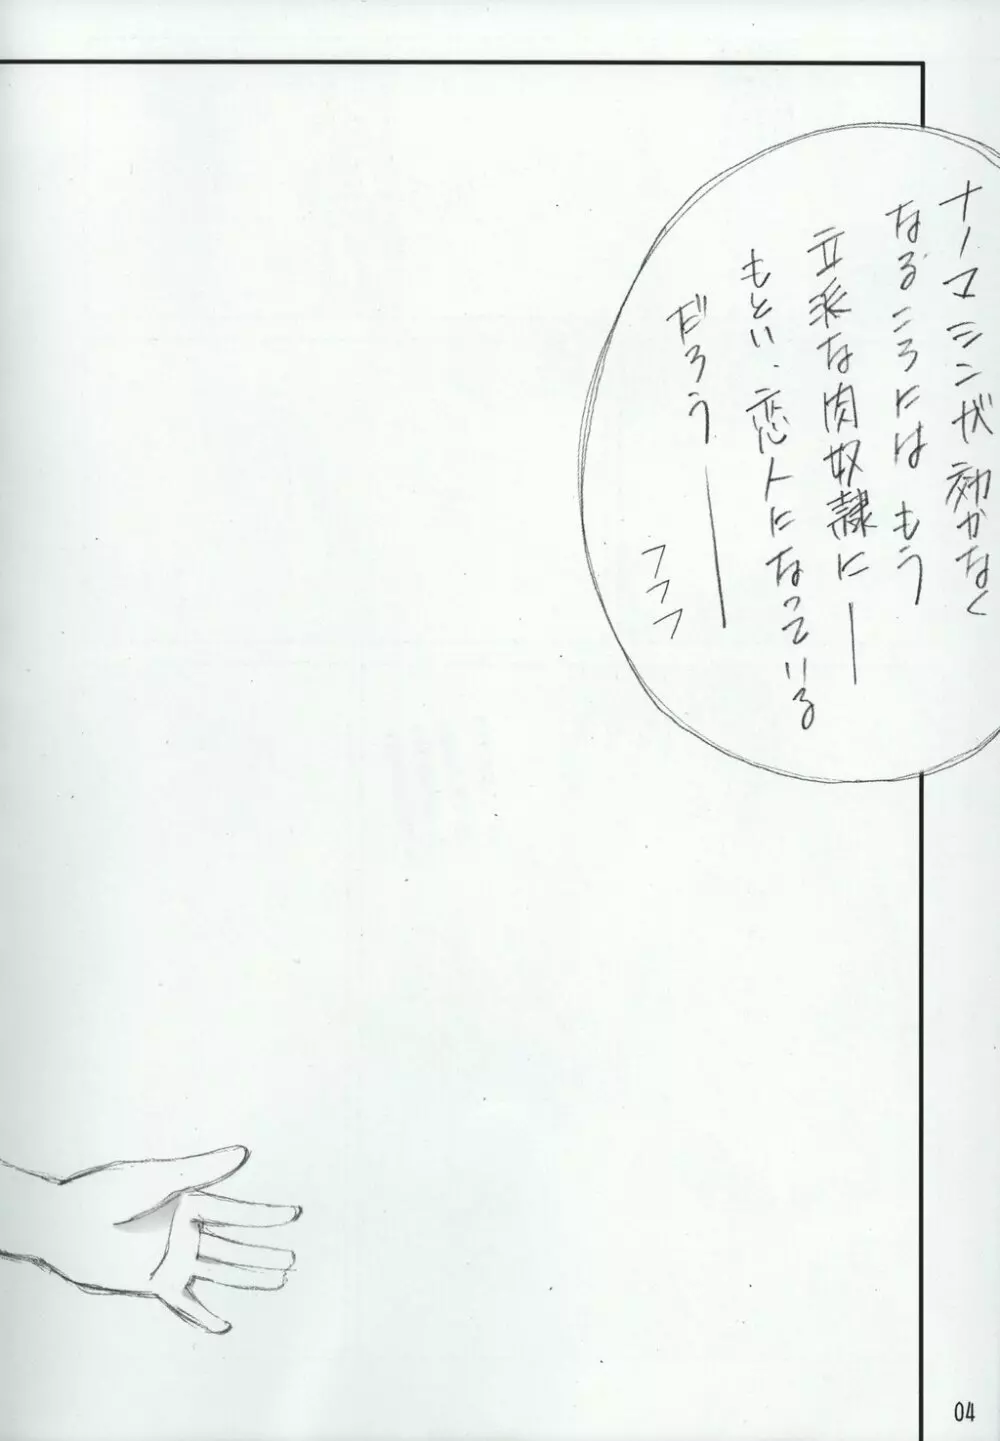 ナノマシンが効かなく
なるころにはもう
立派な肉奴隷に―
もとい、恋人になっている
だろう―
フフフ
04